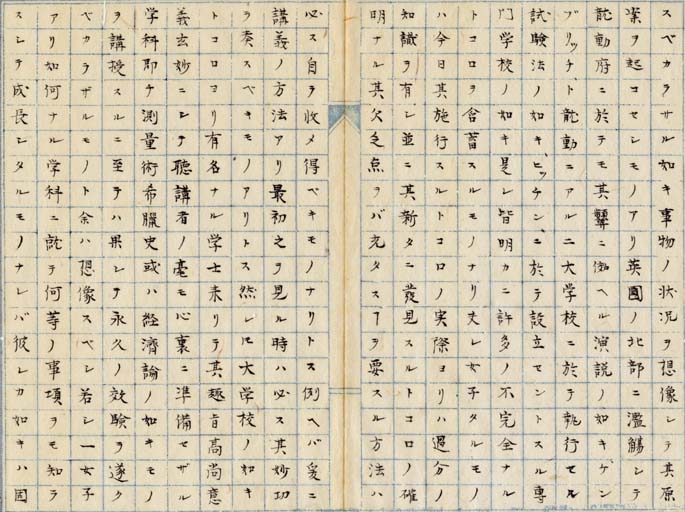 スベカラザル如キ事物ノ状況ヲ想像シテ其原
案ヲ起コセシモノアリ英国ノ北部ニ濫觴シテ
龍動府ニ於テモ其顰ニ傚ヘル演説ノ如キ、ケン
ブリッチ、ト龍動ニアル二大学校ニ於テ執行セル
試験法ノ如キ、ヒッチン、ニ於テ設立セントスル専
門学校ノ如キ是レ皆明カニ許多ノ不完全ナル
トコロヲ含蓄スルモノナリ夫レ女子タルモノ
ハ今日其施行スルトコロノ実際ヨリハ過分ノ
知識ヲ有シ並ニ其新タニ発見スルトコロノ確
明ナル其欠乏点ヲバ充タスヿヲ要スル方法ハ
必ス自ラ収メ得ベキモノナリトス例ヘバ爰ニ
講義ノ方法アリ最初之ヲ見ル時ハ必ス其妙功
ヲ奏スベキモノアリトス然レ𪜈大学校ノ如キ
トコロヨリ有名ナル学士来リテ其趣旨高尚意
義玄妙ニシテ聴講者ノ毫モ心裏ニ準備セザル
学科即チ測量術希臘史或ハ経済論ノ如キモノ
ヲ講授スルニ至テハ果シテ永久ノ效験ヲ遂ク
ベカラザルモノト余ハ想像スベシ若シ一女子
アリ如何ナル学科ニ就テ何等ノ事項ヲモ知ラ
スシテ成長シタルモノナレバ彼レカ如キハ固